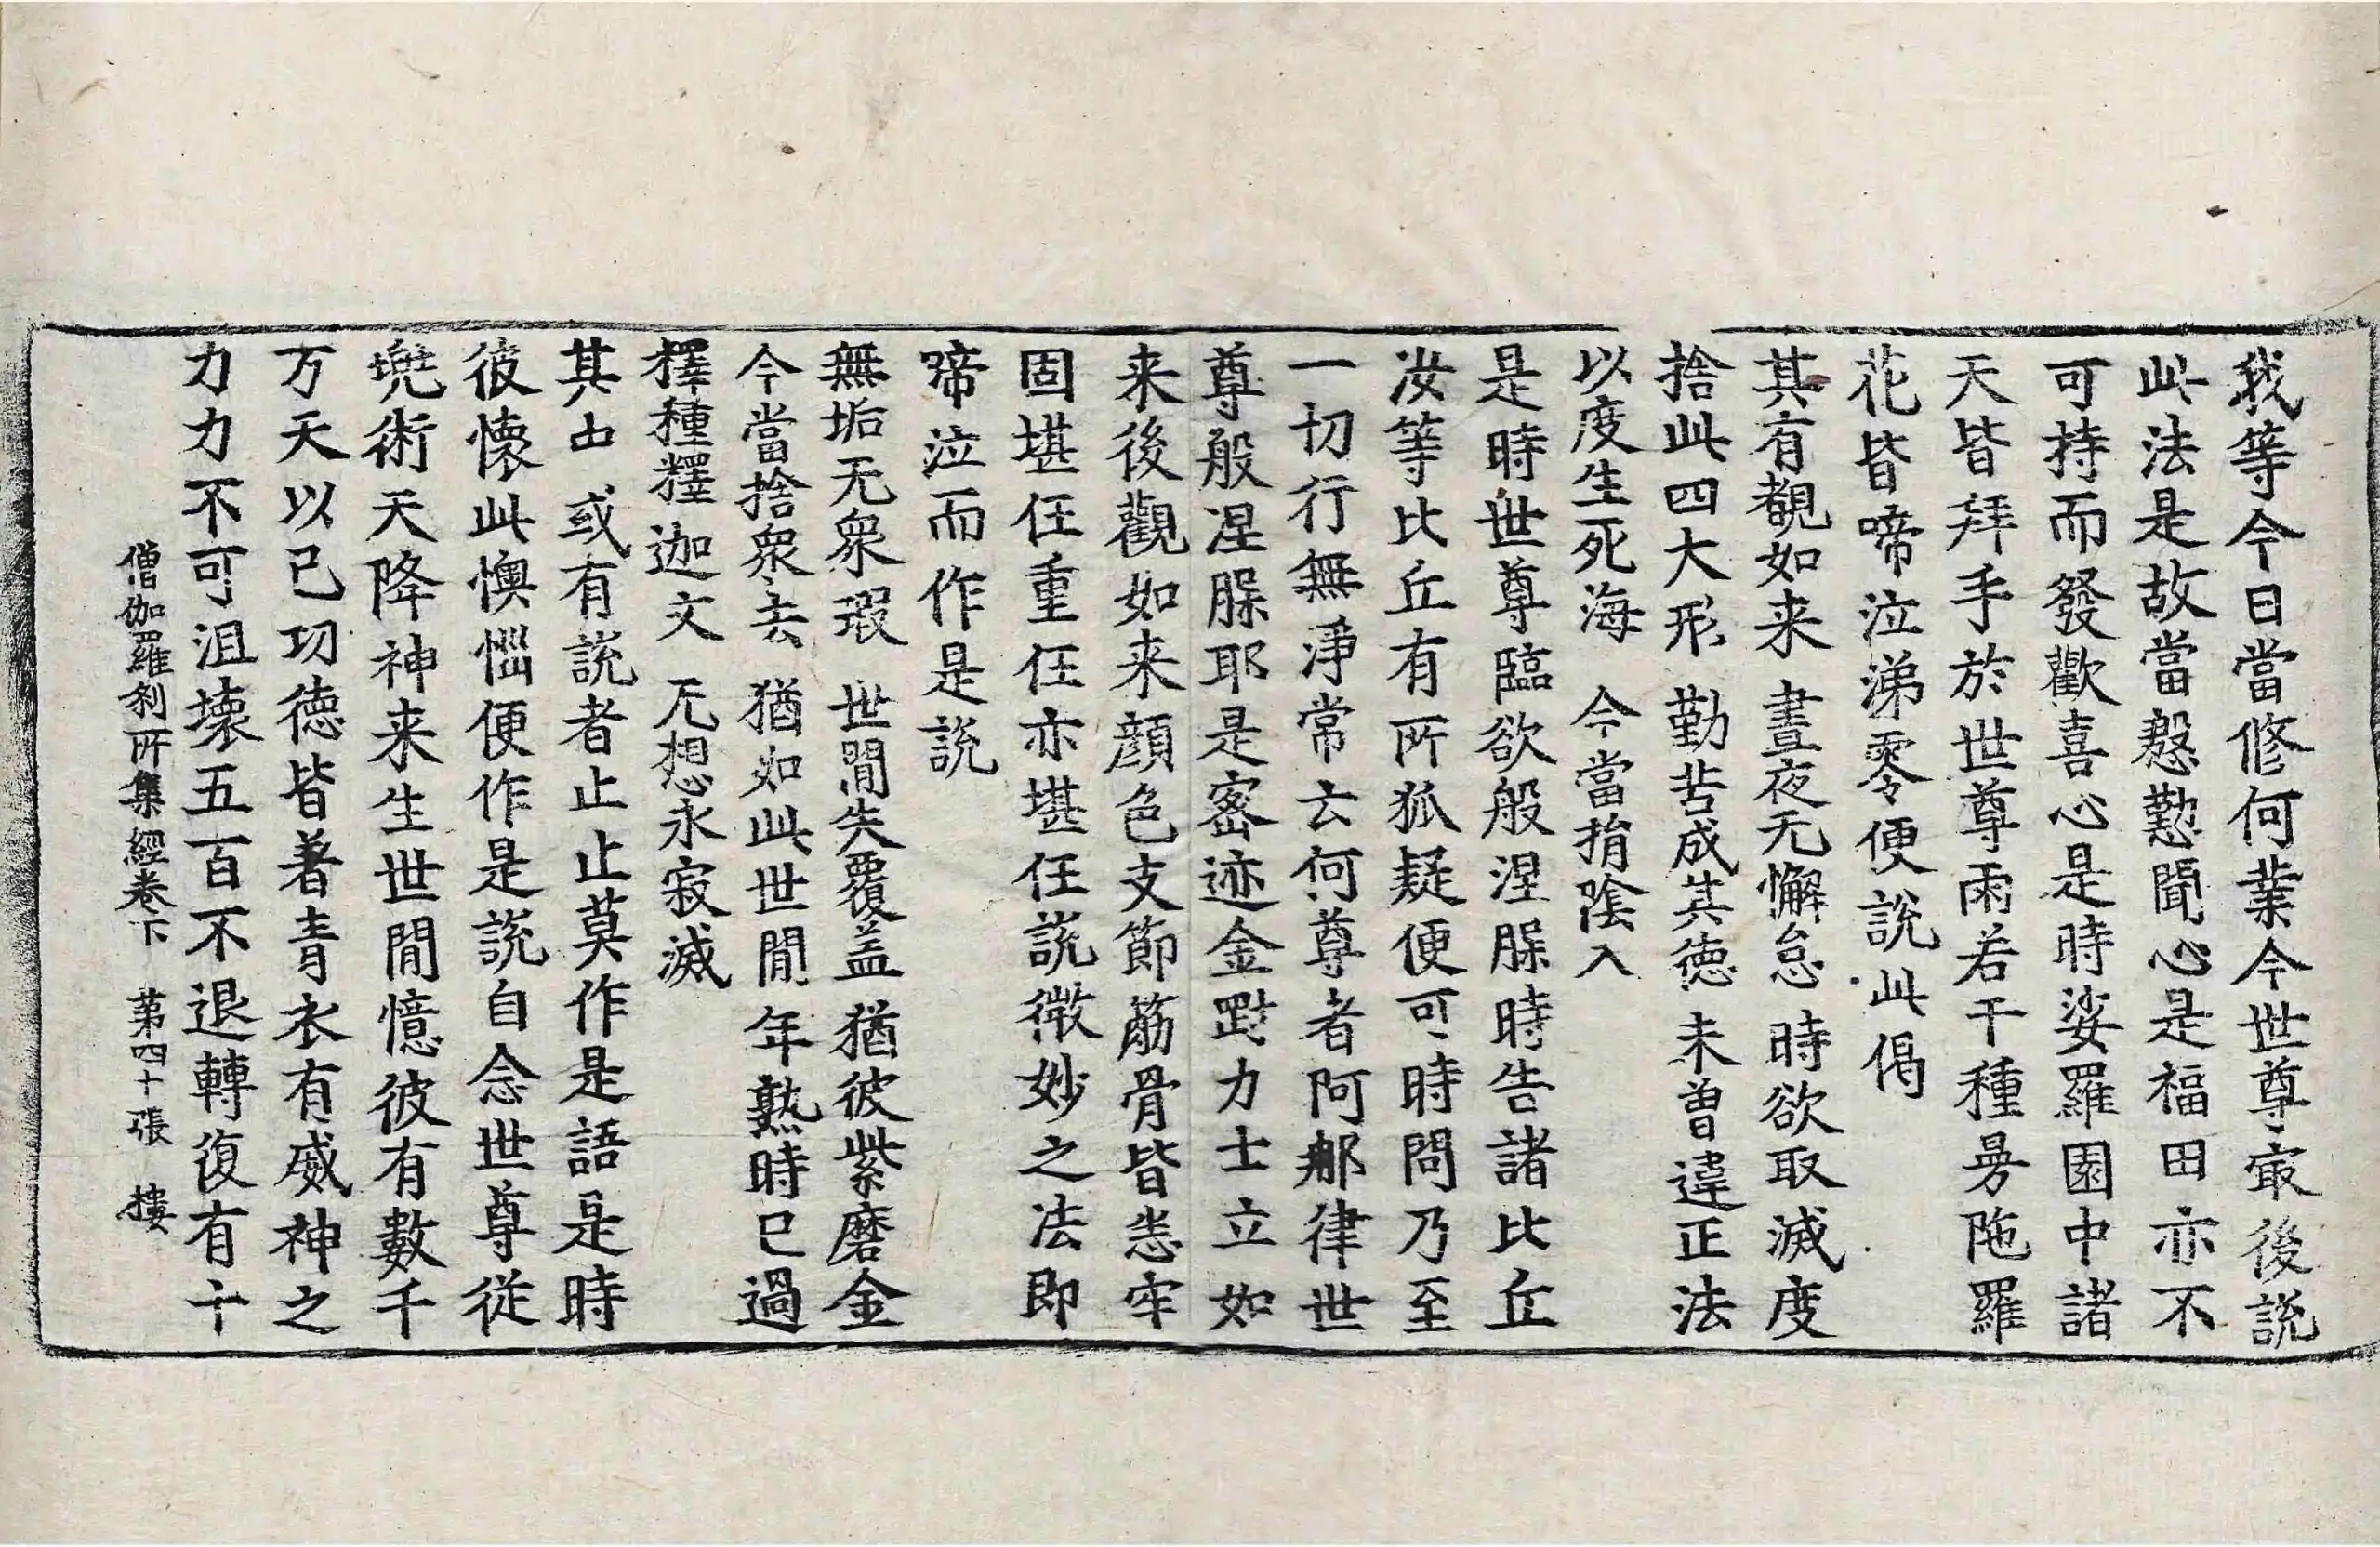 我等今日當修何業今世尊㝡後說
此法是故當慇懃聞心是福田亦不
可持而發歡喜心是時娑羅園中諸
天皆拜手於世尊雨若干種曼陁羅
花皆啼泣涕零便說此偈
其有覩如来　晝夜无懈怠　時欲取滅度
捨此四大形　勤苦成其德　未曽違正法
以度生死海　今當捐陰入
是時世尊臨欲般涅槃時告諸比丘
汝等比丘有所狐疑便可時問乃至
一切行無淨常云何尊者阿那律世
尊般涅槃耶是密迹金剛力士立如
来後觀如来顔色支節筋骨皆悉牢
固堪任重任亦堪任說微妙之法即
啼泣而作是說
無垢无衆瑕　世閒失覆盖　猶彼紫磨金
今當捨衆去　猶如此世閒　年熟時已過
釋種釋迦文　无想永寂滅
其中或有說者止止莫作是語是時
彼懷此懊惱便作是說自念世尊從
兠術天降神来生世閒憶彼有數千
万天以己功德皆著青衣有威神之
力力不可沮壞五百不退轉復有十
僧伽羅刹所集經卷下　第四十張　樓